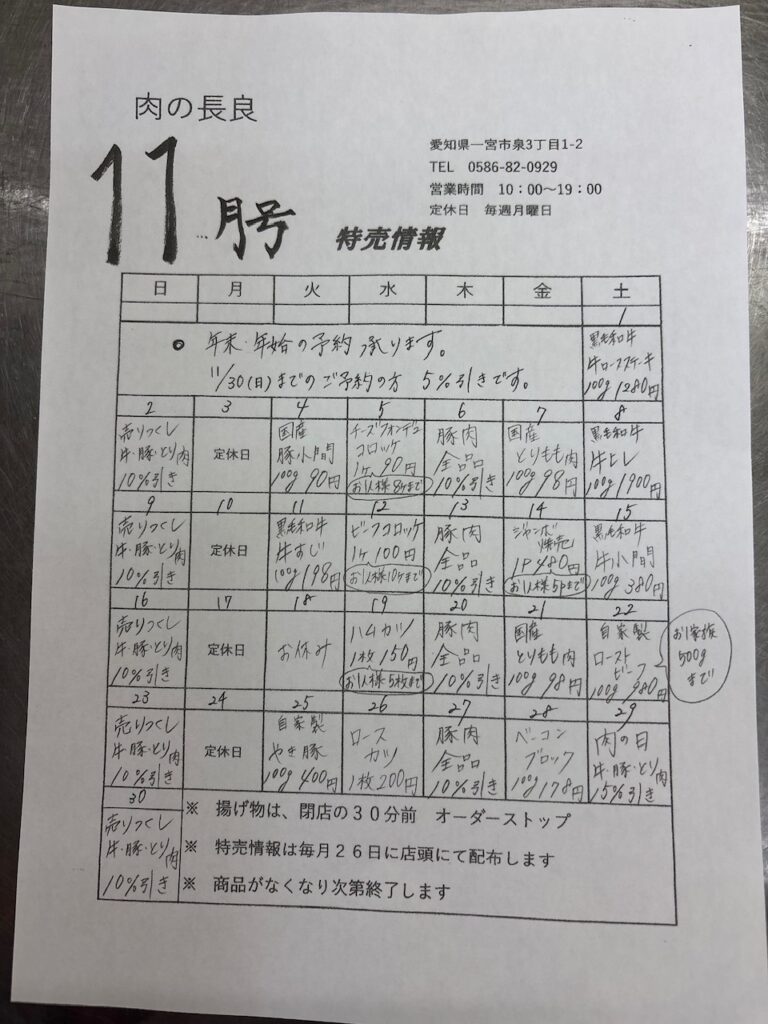 肉の長良
11月号
特売情報
愛知県一宮市泉3丁目1-2
TEL 0586-82-0929
営業時間 10：00〜19：00
定休日 毎週月曜日
日 月 火 水 木 金 土
1
年末・年始の予約承ります。
11/30(日)までのご予約の方 5%引きです。
黒毛和牛
牛ロースステーキ
100g 1280円
2 3 4 5 6 7 8
売りつくし
牛・豚・とり肉
10%引き
定休日
国産
豚小間
100g 90円
チーズフォンデュ
コロッケ
1ヶ 90円
お1人様8ヶまで
豚肉
全品
10%引き
国産
とりもも肉
100g 98円
黒毛和牛
牛ヒレ
100g 1900円
9 10 11 12 13 14 15
売りつくし
牛・豚・とり肉
10%引き
定休日
黒毛和牛
牛すじ
100g 198円
ビーフコロッケ
1ヶ 100円
お1人様10ヶまで
豚肉
全品
10%引き
ジャンボ
焼売
1P 480円
お1人様5Pまで
黒毛和牛
牛小間
100g 380円
16 17 18 19 20 21 22
売りつくし
牛・豚・とり肉
10%引き
定休日
お休み
ハムカツ
1枚 150円
お1人様5枚まで
豚肉
全品
10%引き
国産
とりもも肉
100g 98円
自家製
ロースト
ビーフ
100g 980円
お1家族
500g
まで
23 24 25 26 27 28 29
売りつくし
牛・豚・とり肉
10%引き
定休日
自家製
やき豚
100g 400円
ロース
カツ
1枚 200円
豚肉
全品
10%引き
ベーコン
ブロック
100g 178円
肉の日
牛・豚・とり肉
15%引き
30
売りつくし
牛・豚・とり肉
10%引き
※ 揚げ物は、閉店の３０分前 オーダーストップ
※ 特売情報は毎月２６日に店頭にて配布します
※ 商品がなくなり次第終了します